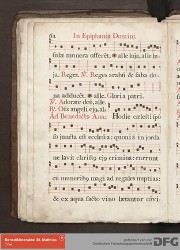 62 In Epiphania Domini
saba munera offerét. * alle luja, alle lu-
ja. Reges. V. Reges arabū & saba do-
na adducét. * alle. Gloria patri.
V. Adorate deū, alle.
R. Oēs angeli ejꝰ, al.
Ad Benedictꝰ Ana. Hodie celesti spō
so juncta est ecclesia: quoniā in jorda
ne lavit christꝰ ejꝰ crimina: currunt
cū muneribꝰ magi ad regales nuptias:
& ex aqua facto vino lætantur cōvi
Benediktinerabtei St. Matthias
Trier
DFG